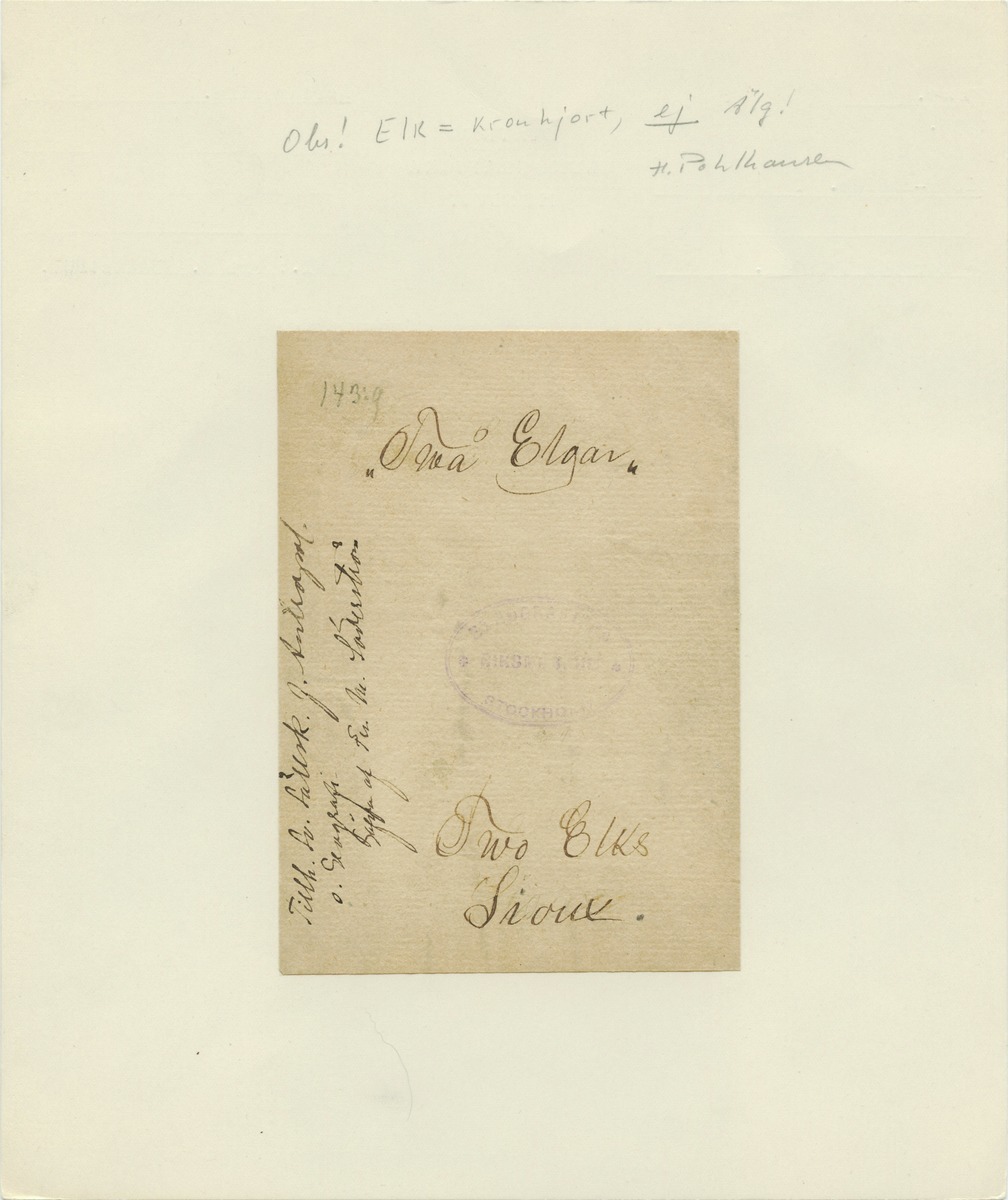 Obs! Elk = Kronhjort, ej älg!
H. Pohlhausen
143:9
"Twå Elgar"
Tillh. Sv. Sällsk. f. Antropol.
o. Geografi
af Frn. M. Söderström
STOCKHOLM
Two Elks
Sioux.